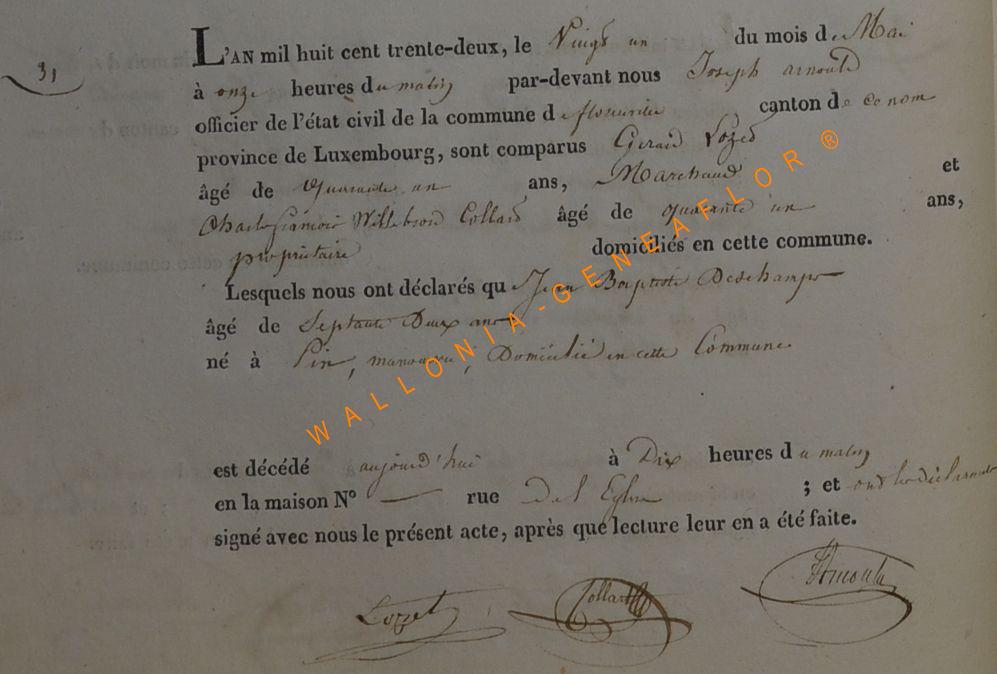 31
L'AN mil huit cent trente-deux, le Vingt un du mois de Mai
à onze heures du matin par-devant nous Joseph arnould
officier de l'état civil de la commune de florenville canton de ce nom
province de Luxembourg, sont comparus Gerard Lozet
âgé de Quarante un ans, Marchand et
Charles françois Willebrod Collard âgé de quarante un ans,
propriétaire domiciliés en cette commune.
Lesquels nous ont déclarés que Jean Baptiste Deschamps
âgé de Septante Deux ans
né à Pin, manœuvre, Domicilié en cette Commune.
est décédé aujourd'hui à Dix heures du matin
en la maison N° — rue De l'Eglise ; et ont les déclarants
signé avec nous le présent acte, après que lecture leur en a été faite.
Lozet Collard Arnould
WALLONIA-GENEAFLOR ®